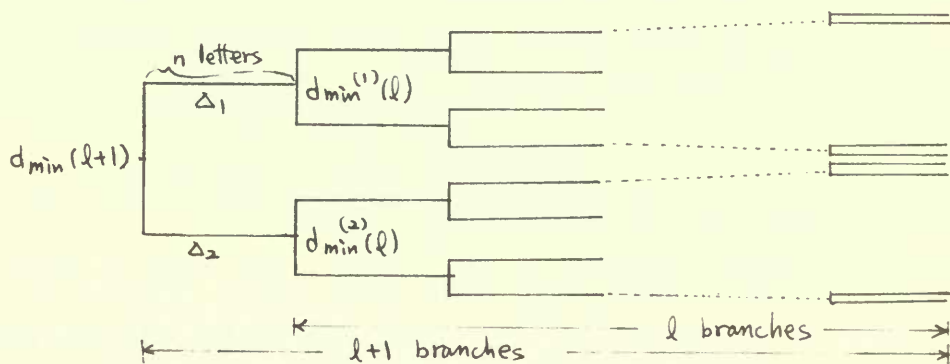 n letters
Δ₁
d_min^(1)(l)
d_min(l+1)
Δ₂
d_min^(2)(l)
l branches
l+1 branches